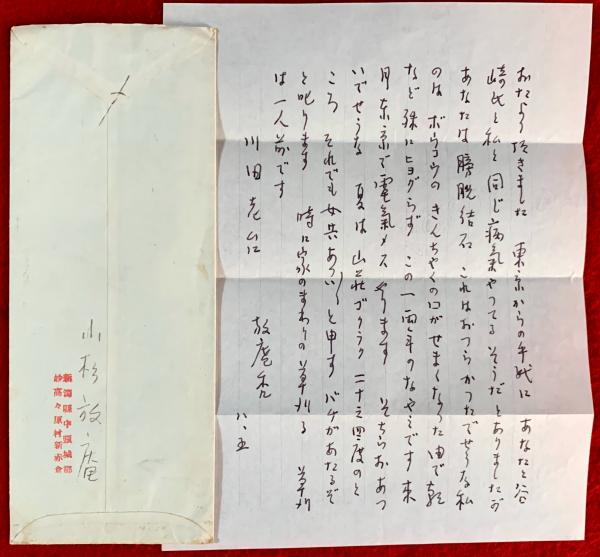 おたより頂きました 東京からの手紙に あなたと谷
崎氏と私と同じ病氣やつてるそうだとありましたが
あなたは膀胱結石 これはおつらかつたでせうな 私
のは ボウコウのきんちやくの口がせまくなつた由で
など殊に この一両年のなやみです 来
月東京で電氣メスやります そちらおあつ
いでせうな 夏は山荘ゴクラク 二十三四度のと
ころ それでも女共あつい〱と申す バチがあたるぞ
と叱ります 時に家のまわりの草刈る 草刈
は一人前です
川田
放庵
八、五
小杉放庵
新潟縣中頸城郡
妙高々原村新赤倉